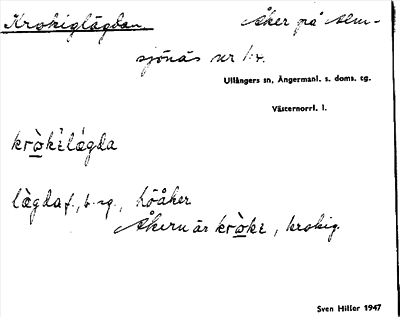 Krokiglägdan Åker på Alm-
sjönäs nr 1:4.
Ullångers sn, Ångermanl. s. doms. tg.
Västernorrl. l.
kròkìlǽgda
lǽgda f., b. sg., höåker
Åkern är kròkı, krokig.
Sven Hillor 1947